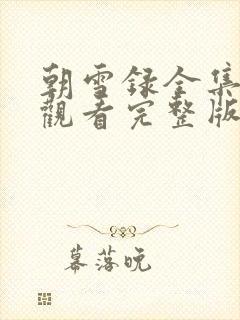 朝雪録全集
觀看完整版
幕落晚